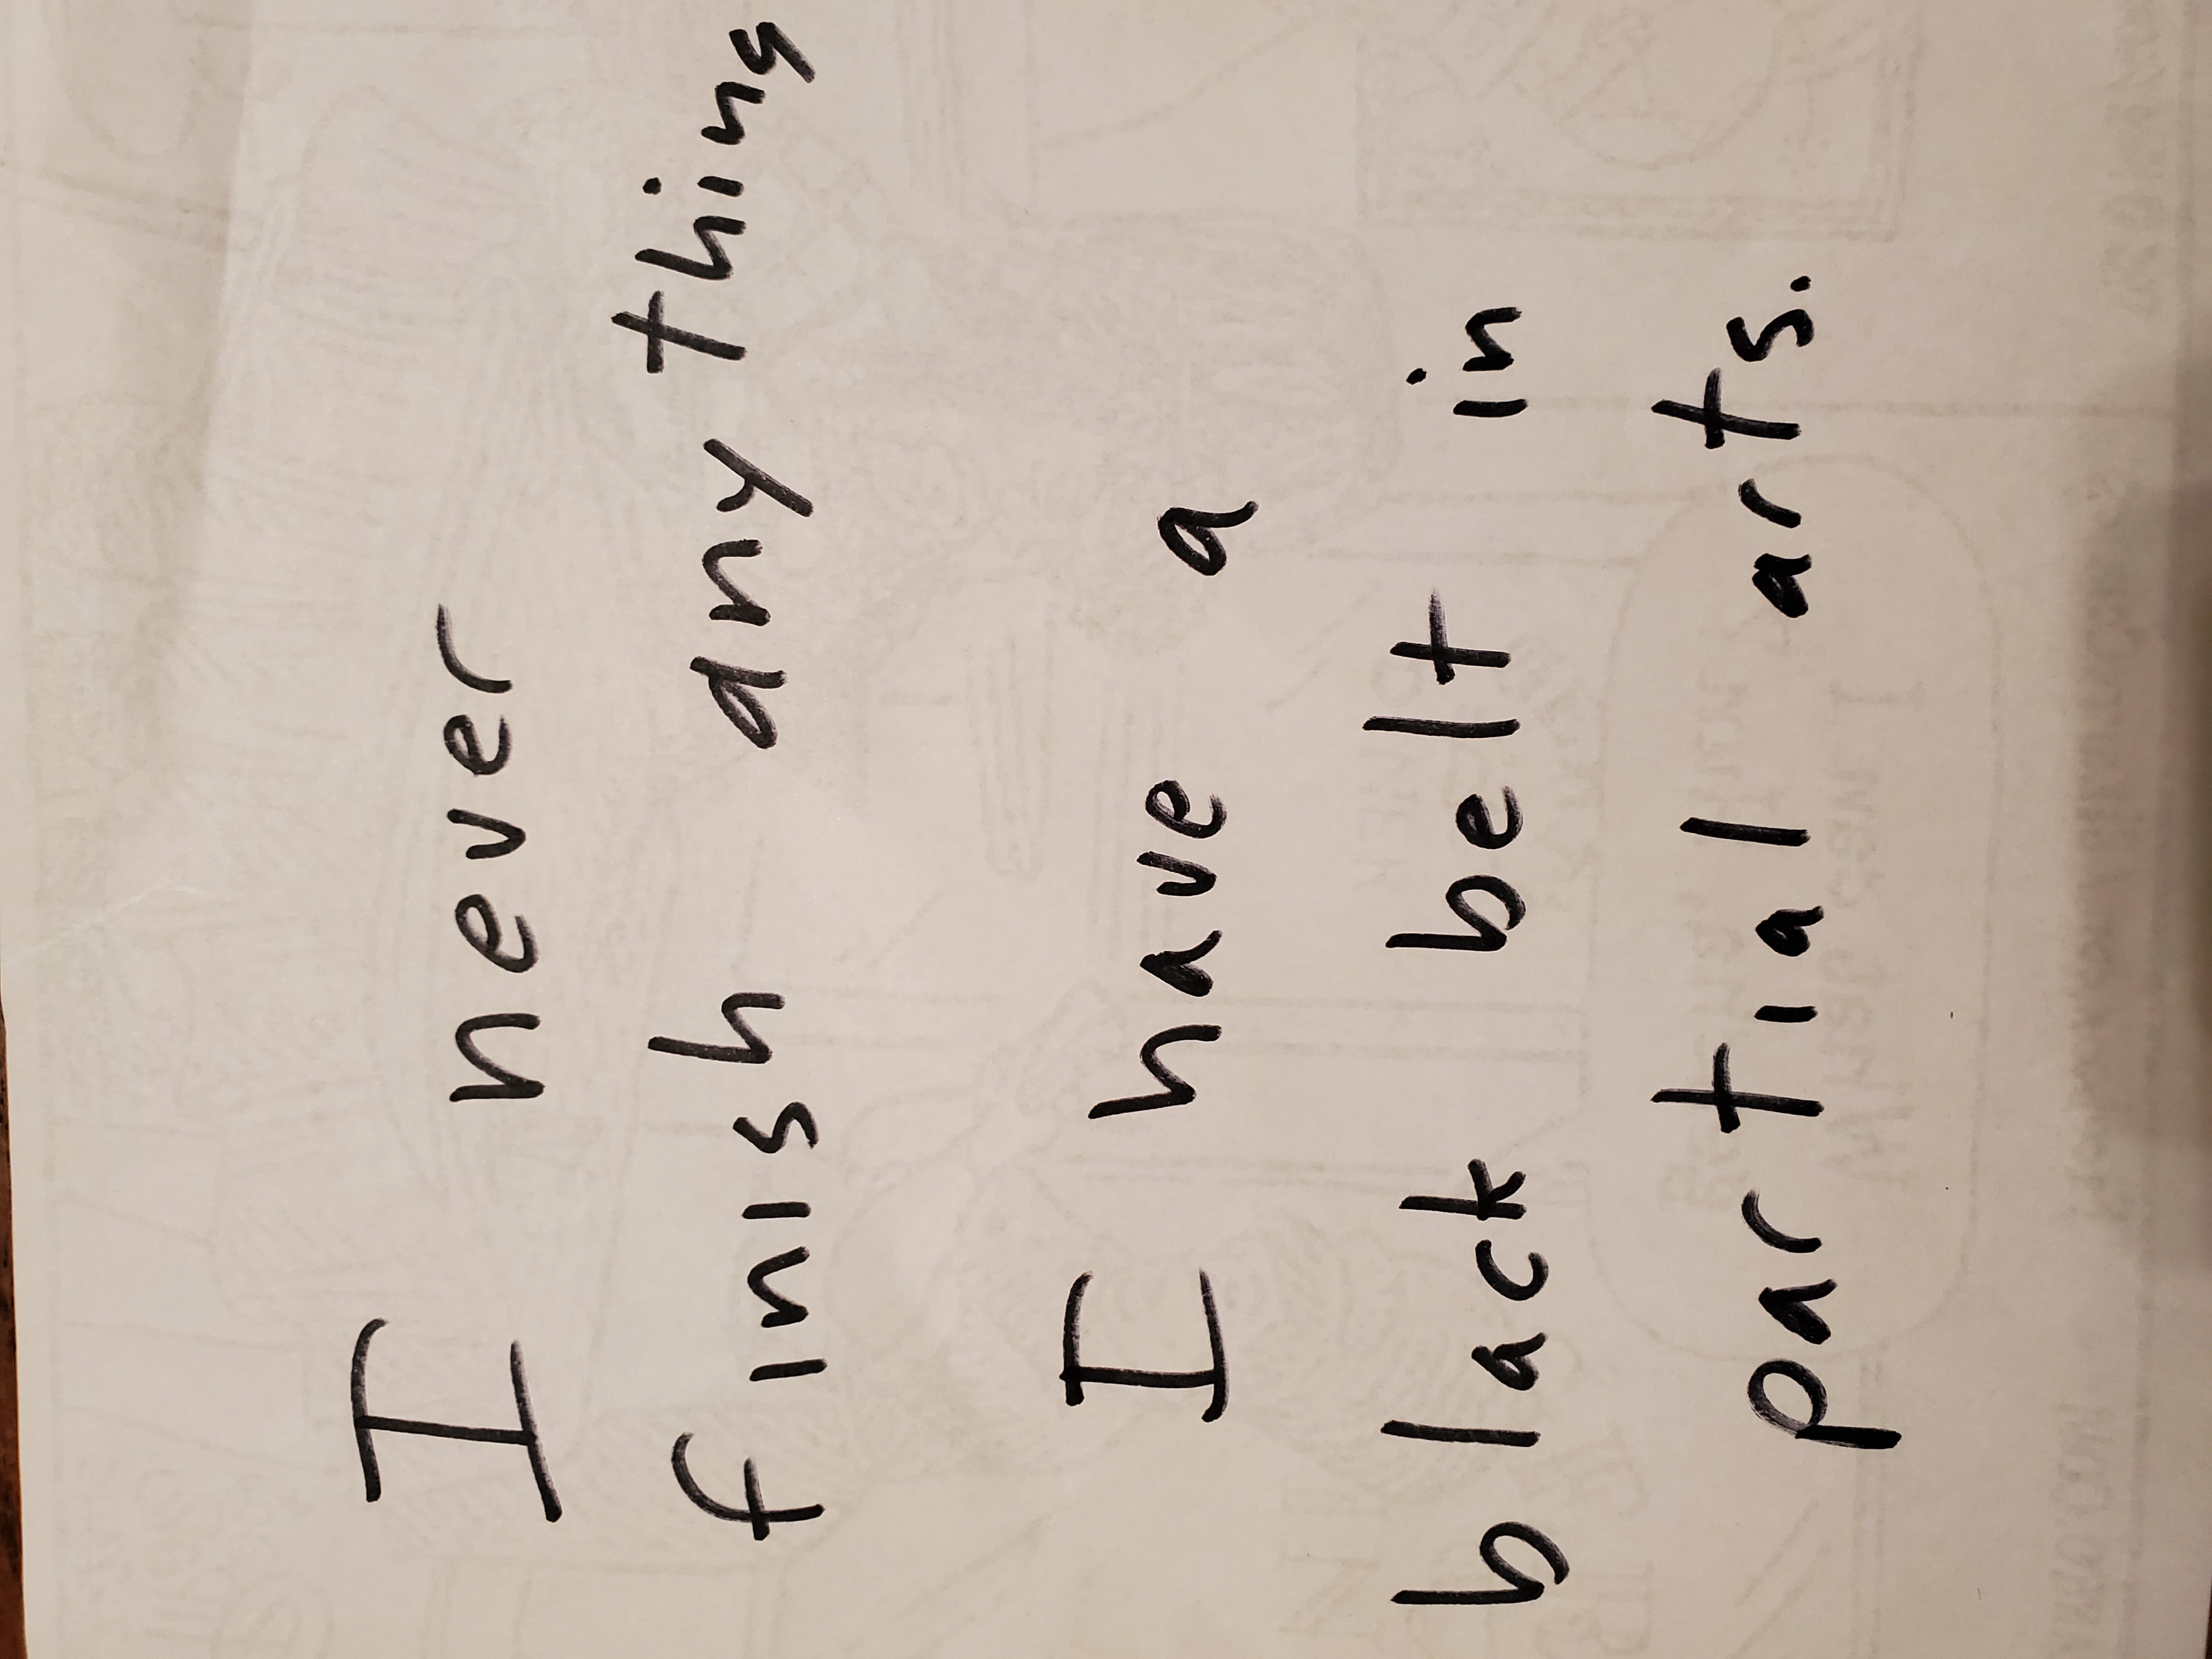 I never
finish any thing
I have a
black belt in
partial arts.